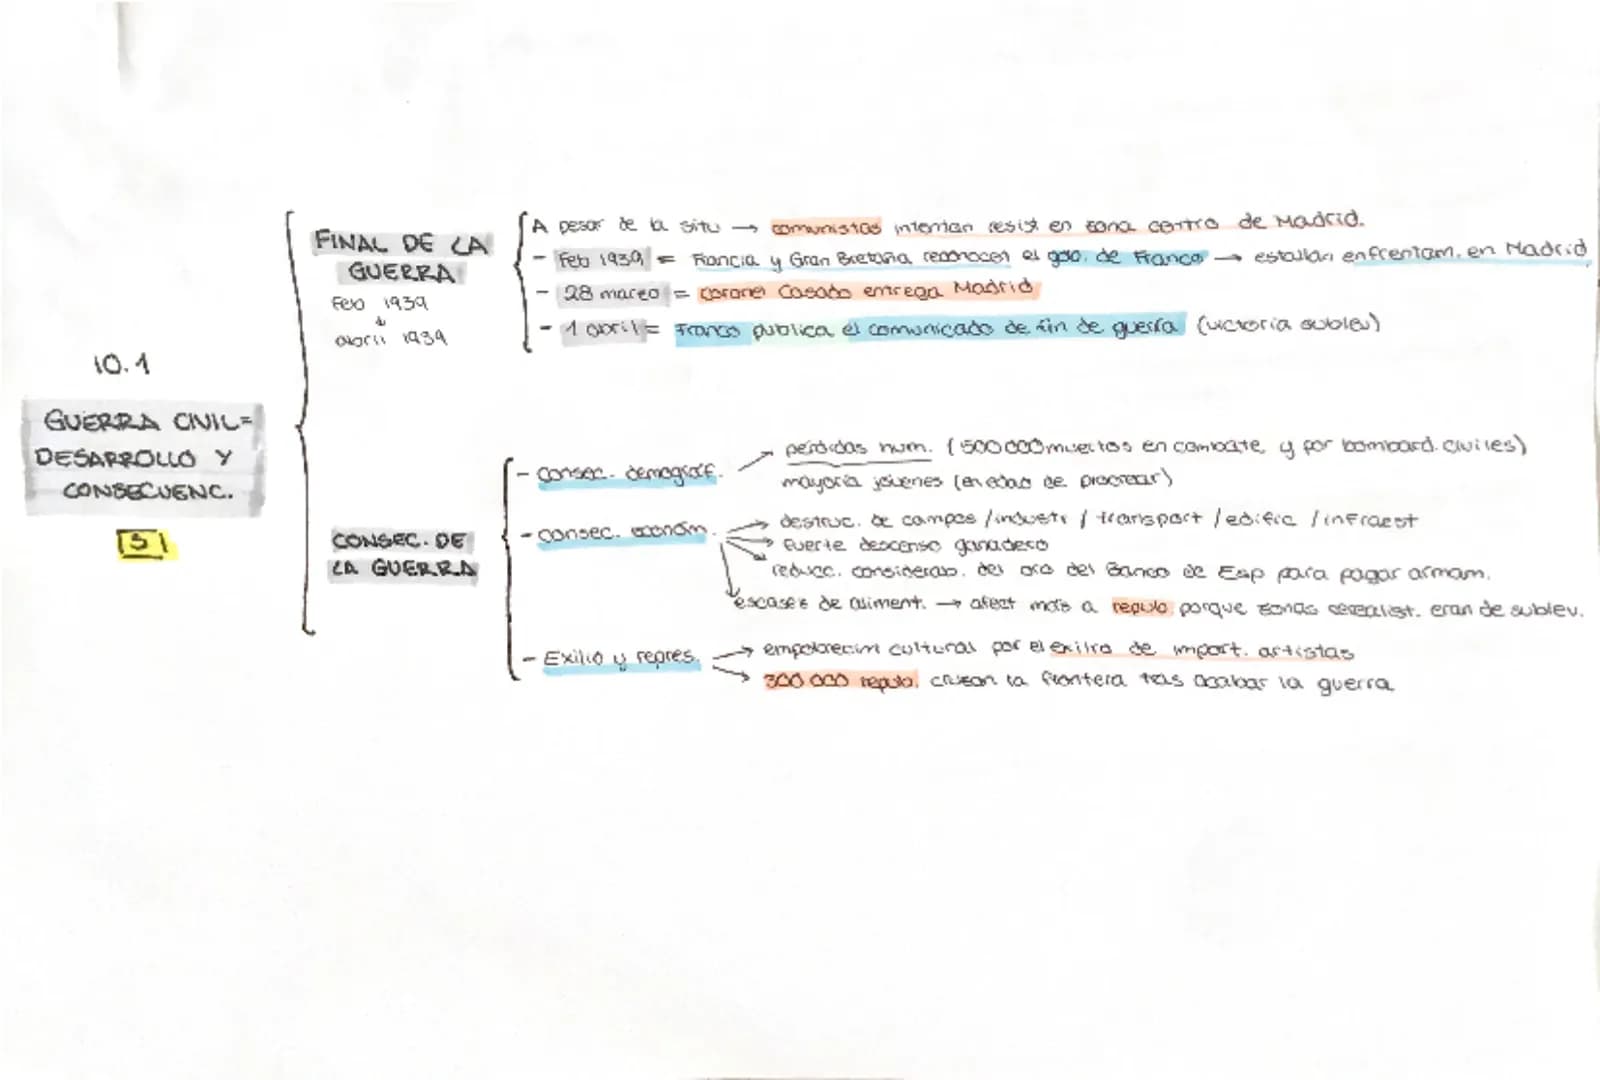 10.1
GUERRA CIVIL=
DESARROLLO Y
CONSECUENC.
3
FINAL DE LA
GUERRA
Feb 1939
↓
abril 1939
A pesar de la situ → comunistas intentan resist en zona centro de Madrid.
- Feb 1939 = Francia y Gran Bretaña reconocen el gob. de Franco → estallan enfrentam. en Madrid
- 28 marzo = coronel Casado entrega Madrid
- 1 abril = Franco publica el comunicado de fin de guerra (victoria sublev)
CONSEC. DE
LA GUERRA
- consec. demográf. → perdidas num. (500 000 muertos en combate y por bombard. civiles)
mayoría jóvenes (en edad de procrear)
- consec. económ. → destruc. de campos / industr / transport / edific / infraest
→ fuerte descenso ganadero
→ reducc. considerab. del oro del Banco de Esp para pagar armam.
→ escasez de aliment. → afect más a repub. porque zonas cerealist. eran de sublev.
- Exilio y repres. → empobrecim cultural por el exilio de import. artistas
→ 300 000 repub. cruzan la frontera tras acabar la guerra